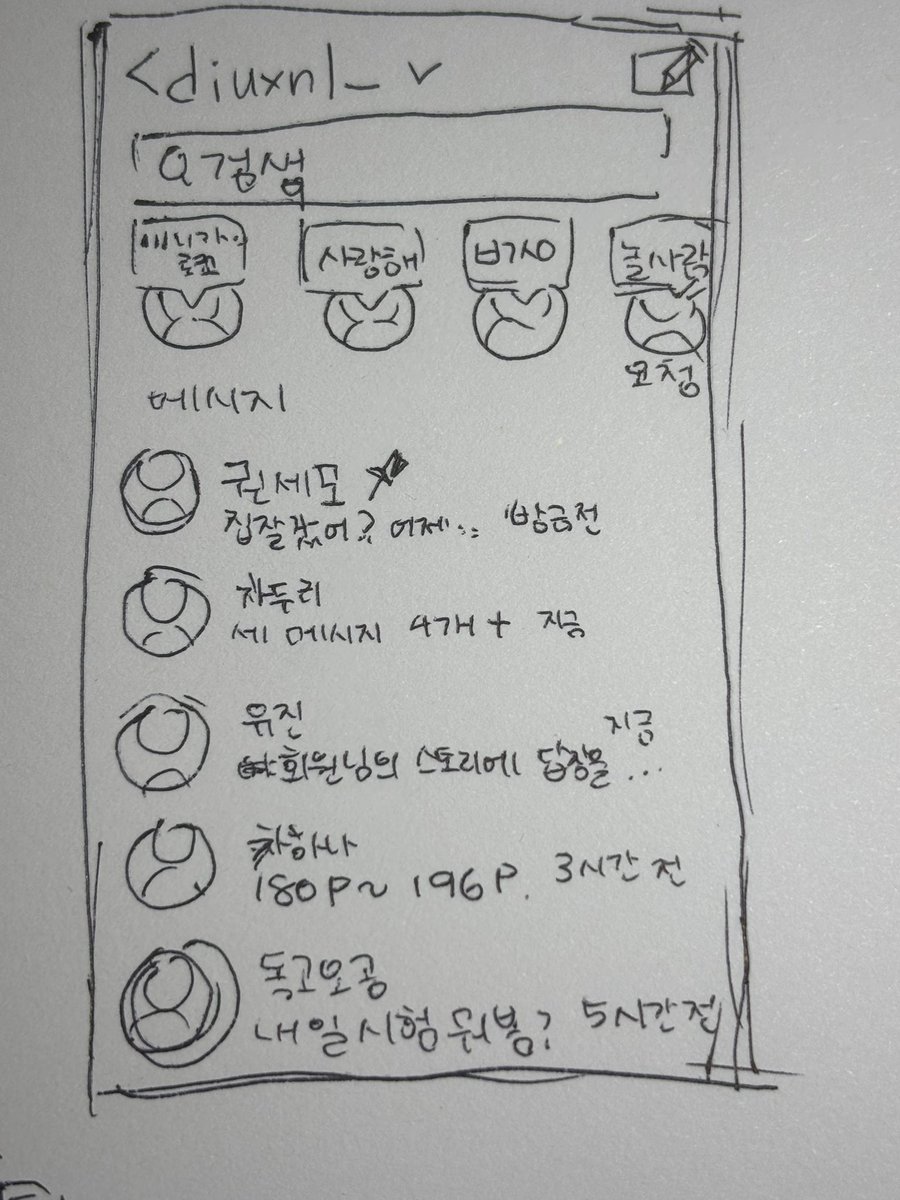 <diuxnl_ ∨
Q 검생
로코
사랑해
ㅂㄱㅅㅇ
놀사람
요청
메시지
권세모
집잘갔어? 어제... 방금전
차두리
세 메시지 4개+ 지금
유진
지금
회원님의 스토리에 답장을 ...
차하나
180P~196P. 3시간 전
독고오공
내일 시험 뭐봄? 5시간 전